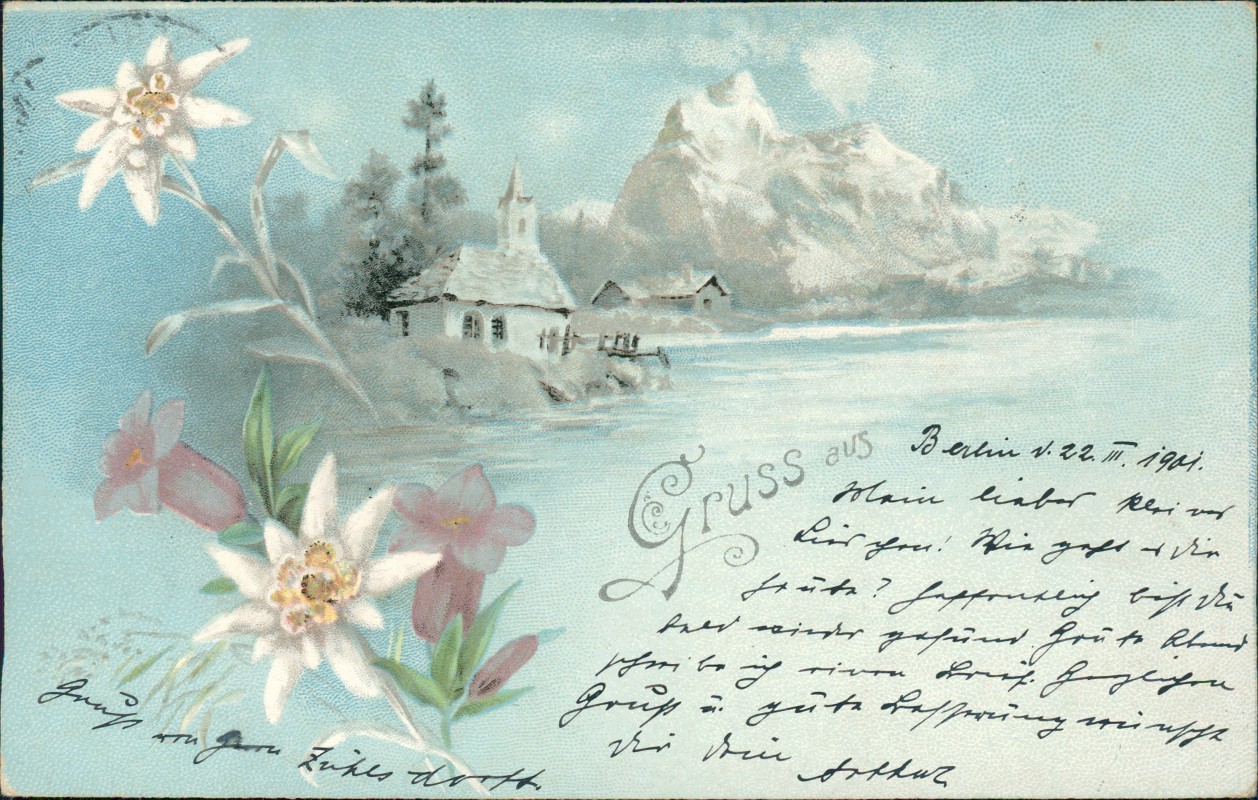 Gruss aus
Berlin d. 22. III. 1901.
Mein liebes kleines
Lieschen! Wie geht es dir
heute? Hoffentlich bist du
bald wieder gesund. Heute Abend
schreibe ich einen Brief. Herzlichen
Gruß u. gute Besserung wünscht
dir dein Arthur
Gruß von Herrn Zühlsdorff.